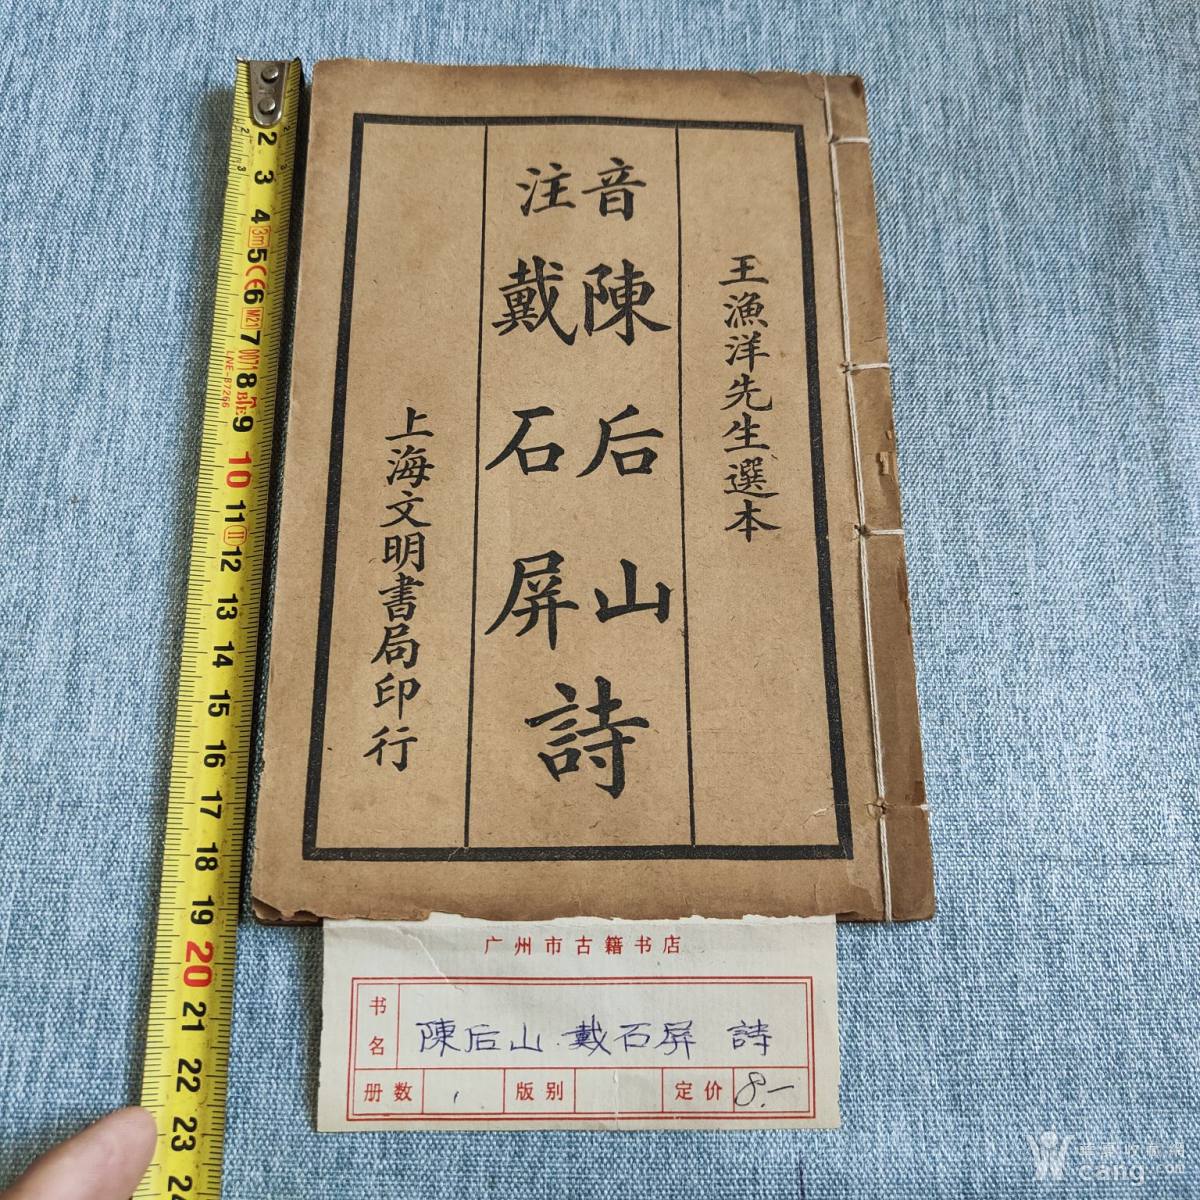 王漁洋先生選本
音注
陳后山
戴石屏
詩
上海文明書局印行
广州市古籍书店
书名
陳后山 戴石屏 詩
册数 1 版别 定价 8.—
2
3
4
3m
5
CE
6
M21
7
8
9
10
11
II
12
13
14
15
16
17
18
19
20
21
22
23
24
LNE-B7266
cang.com